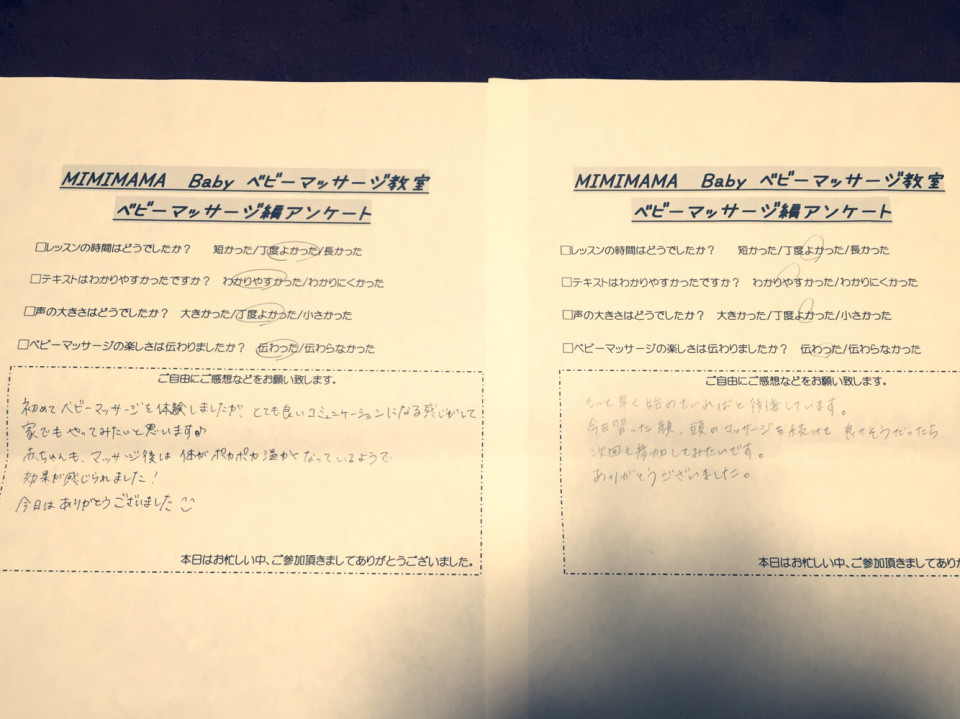 MIMIMAMA Baby ベビーマッサージ教室
ベビーマッサージ編アンケート
□レッスンの時間はどうでしたか？ 短かった/丁度よかった/長かった
□テキストはわかりやすかったですか？ わかりやすかった/わかりにくかった
□声の大きさはどうでしたか？ 大きかった/丁度よかった/小さかった
□ベビーマッサージの楽しさは伝わりましたか？ 伝わった/伝わらなかった
ご自由にご感想などをお願い致します。
初めてベビーマッサージを体験しましたが、とても良いコミュニケーションになる感じがして
家でもやってみたいと思います♪
赤ちゃんも、マッサージ後は体がポカポカ温かくなっているようで
効果が感じられました！
今日はありがとうございました
本日はお忙しい中、ご参加頂きましてありがとうございました。
MIMIMAMA Baby ベビーマッサージ教室
ベビーマッサージ編アンケート
□レッスンの時間はどうでしたか？ 短かった/丁度よかった/長かった
□テキストはわかりやすかったですか？ わかりやすかった/わかりにくかった
□声の大きさはどうでしたか？ 大きかった/丁度よかった/小さかった
□ベビーマッサージの楽しさは伝わりましたか？ 伝わった/伝わらなかった
ご自由にご感想などをお願い致します。
もっと早く始めていればと後悔しています。
今日習った顔、頭のマッサージを続けても良さそうだったら
次回も参加してみたいです。
ありがとうございました。
本日はお忙しい中、ご参加頂きましてありが